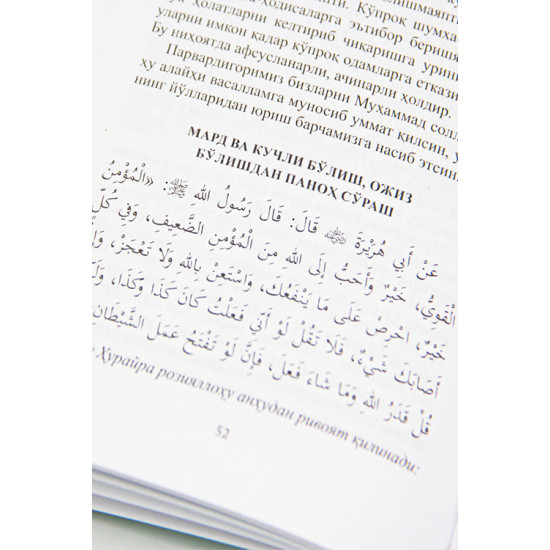 лишмаяпти. Кўпроқ шумха
ҳолатларни келтириб чиқаришга
уларни имкон қадар кўпроқ одамларга еткази
Бу ниҳоятда афсусланарли, ачинарли ҳолдир.
Парвардигоримиз бизларни Муҳаммад солл
ҳу алайҳи васалламга муносиб уммат қилсин, у
нинг йўлларидан юриш барчамизга насиб этсин.
МАРД ВА КУЧЛИ БЎЛИШ, ОЖИЗ
БЎЛИШДАН ПАНОҲ СЎРАШ
عَنْ أَبِي هُرَيْرَةَ ﷺ قَالَ: قَالَ رَسُولُ اللهِ ﷺ: «الْمُؤْمِنُ
الْقَوِيُّ، خَيْرٌ وَأَحَبُّ إِلَى اللهِ مِنَ الْمُؤْمِنِ الضَّعِيفِ، وَفِي كُلٍّ
خَيْرٌ، احْرِصْ عَلَى مَا يَنْفَعُكَ، وَاسْتَعِنْ بِاللهِ وَلَا تَعْجَزْ،
أَصَابَكَ شَيْءٌ، فَلَا تَقُلْ لَوْ أَنِّي فَعَلْتُ كَانَ كَذَا وَكَذَا،
قُلْ قَدَرُ اللهِ وَمَا شَاءَ فَعَلَ، فَإِنَّ لَوْ تَفْتَحُ عَمَلَ الشَّيْطَانِ
Ҳурайра розияллоҳу анҳудан ривоят қилинади:
52